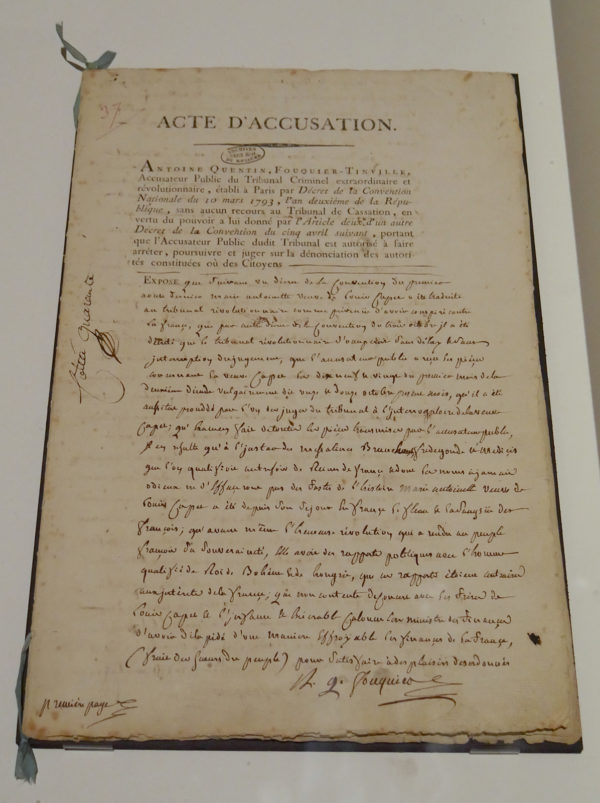 37
ACTE D'ACCUSATION.
ANTOINE QUENTIN, FOUQUIER-TINVILLE,
Accusateur Public du Tribunal Criminel extraordinaire et
révolutionnaire, établi à Paris par Décret de la Convention
Nationale du 10 mars 1793, l'an deuxième de la Répu-
blique, sans aucun recours au Tribunal de Cassation, en
vertu du pouvoir a lui donné par l'Article deux d'un autre
Décret de la Convention du cinq avril suivant, portant
que l'Accusateur Public dudit Tribunal est autorisé à faire
arrêter, poursuivre et juger sur la dénonciation des autori-
tés constituées où des Citoyens
Cotée quarante
EXPOSE que suivant un décret de la Convention du premier
aoust dernier marie antoinette veuve de Louis Capet a été traduite
au tribunal révolutionnaire comme prévenue d'avoir conspiré contre
la france, que par autre décret de la Convention du trois octobre il a été
décrété que le tribunal révolutionnaire s'occuperoit sans délay et sans
interruption du jugement, que l'accusateur public a reçu les pièces
concernant la veuve Capet les dix neuf et vingt du premier mois de la
deuxième décade vulgairement dit onze et douze octobre présent mois, qu'il a été
aussitôt procédé par l'un des juges du tribunal à l'interrogatoire de la veuve
Capet; qu'examen fait de toutes les pièces transmises par l'accusateur public,
il en résulte qu'à l'instar des messalines Brunehaut, fredegonde et Medicis
que l'on qualifioit autrefois de Reines de france et dont les noms à jamais
odieux ne s'effaceront pas des fastes de l'histoire marie antoinette veuve de
Louis Capet a été depuis son séjour en france le fléau et la sangsue des
françois; qu'avant même l'heureuse révolution qui a rendu au peuple
françois sa souveraineté, elle avoit des rapports politiques avec l'homme
qualifié de Roi de Bohême et de hongrie, que ces rapports étoient contraires
aux intérêts de la france, que non contente de concert avec les frères de
Louis Capet et l'infame et exécrable Calonne lors ministre des finances
d'avoir dilapidé d'une manière effroyable les finances de la france,
(fruit des sueurs du peuple) pour satisfaire à des plaisirs desordonnés
A. q. fouquier
premiere page